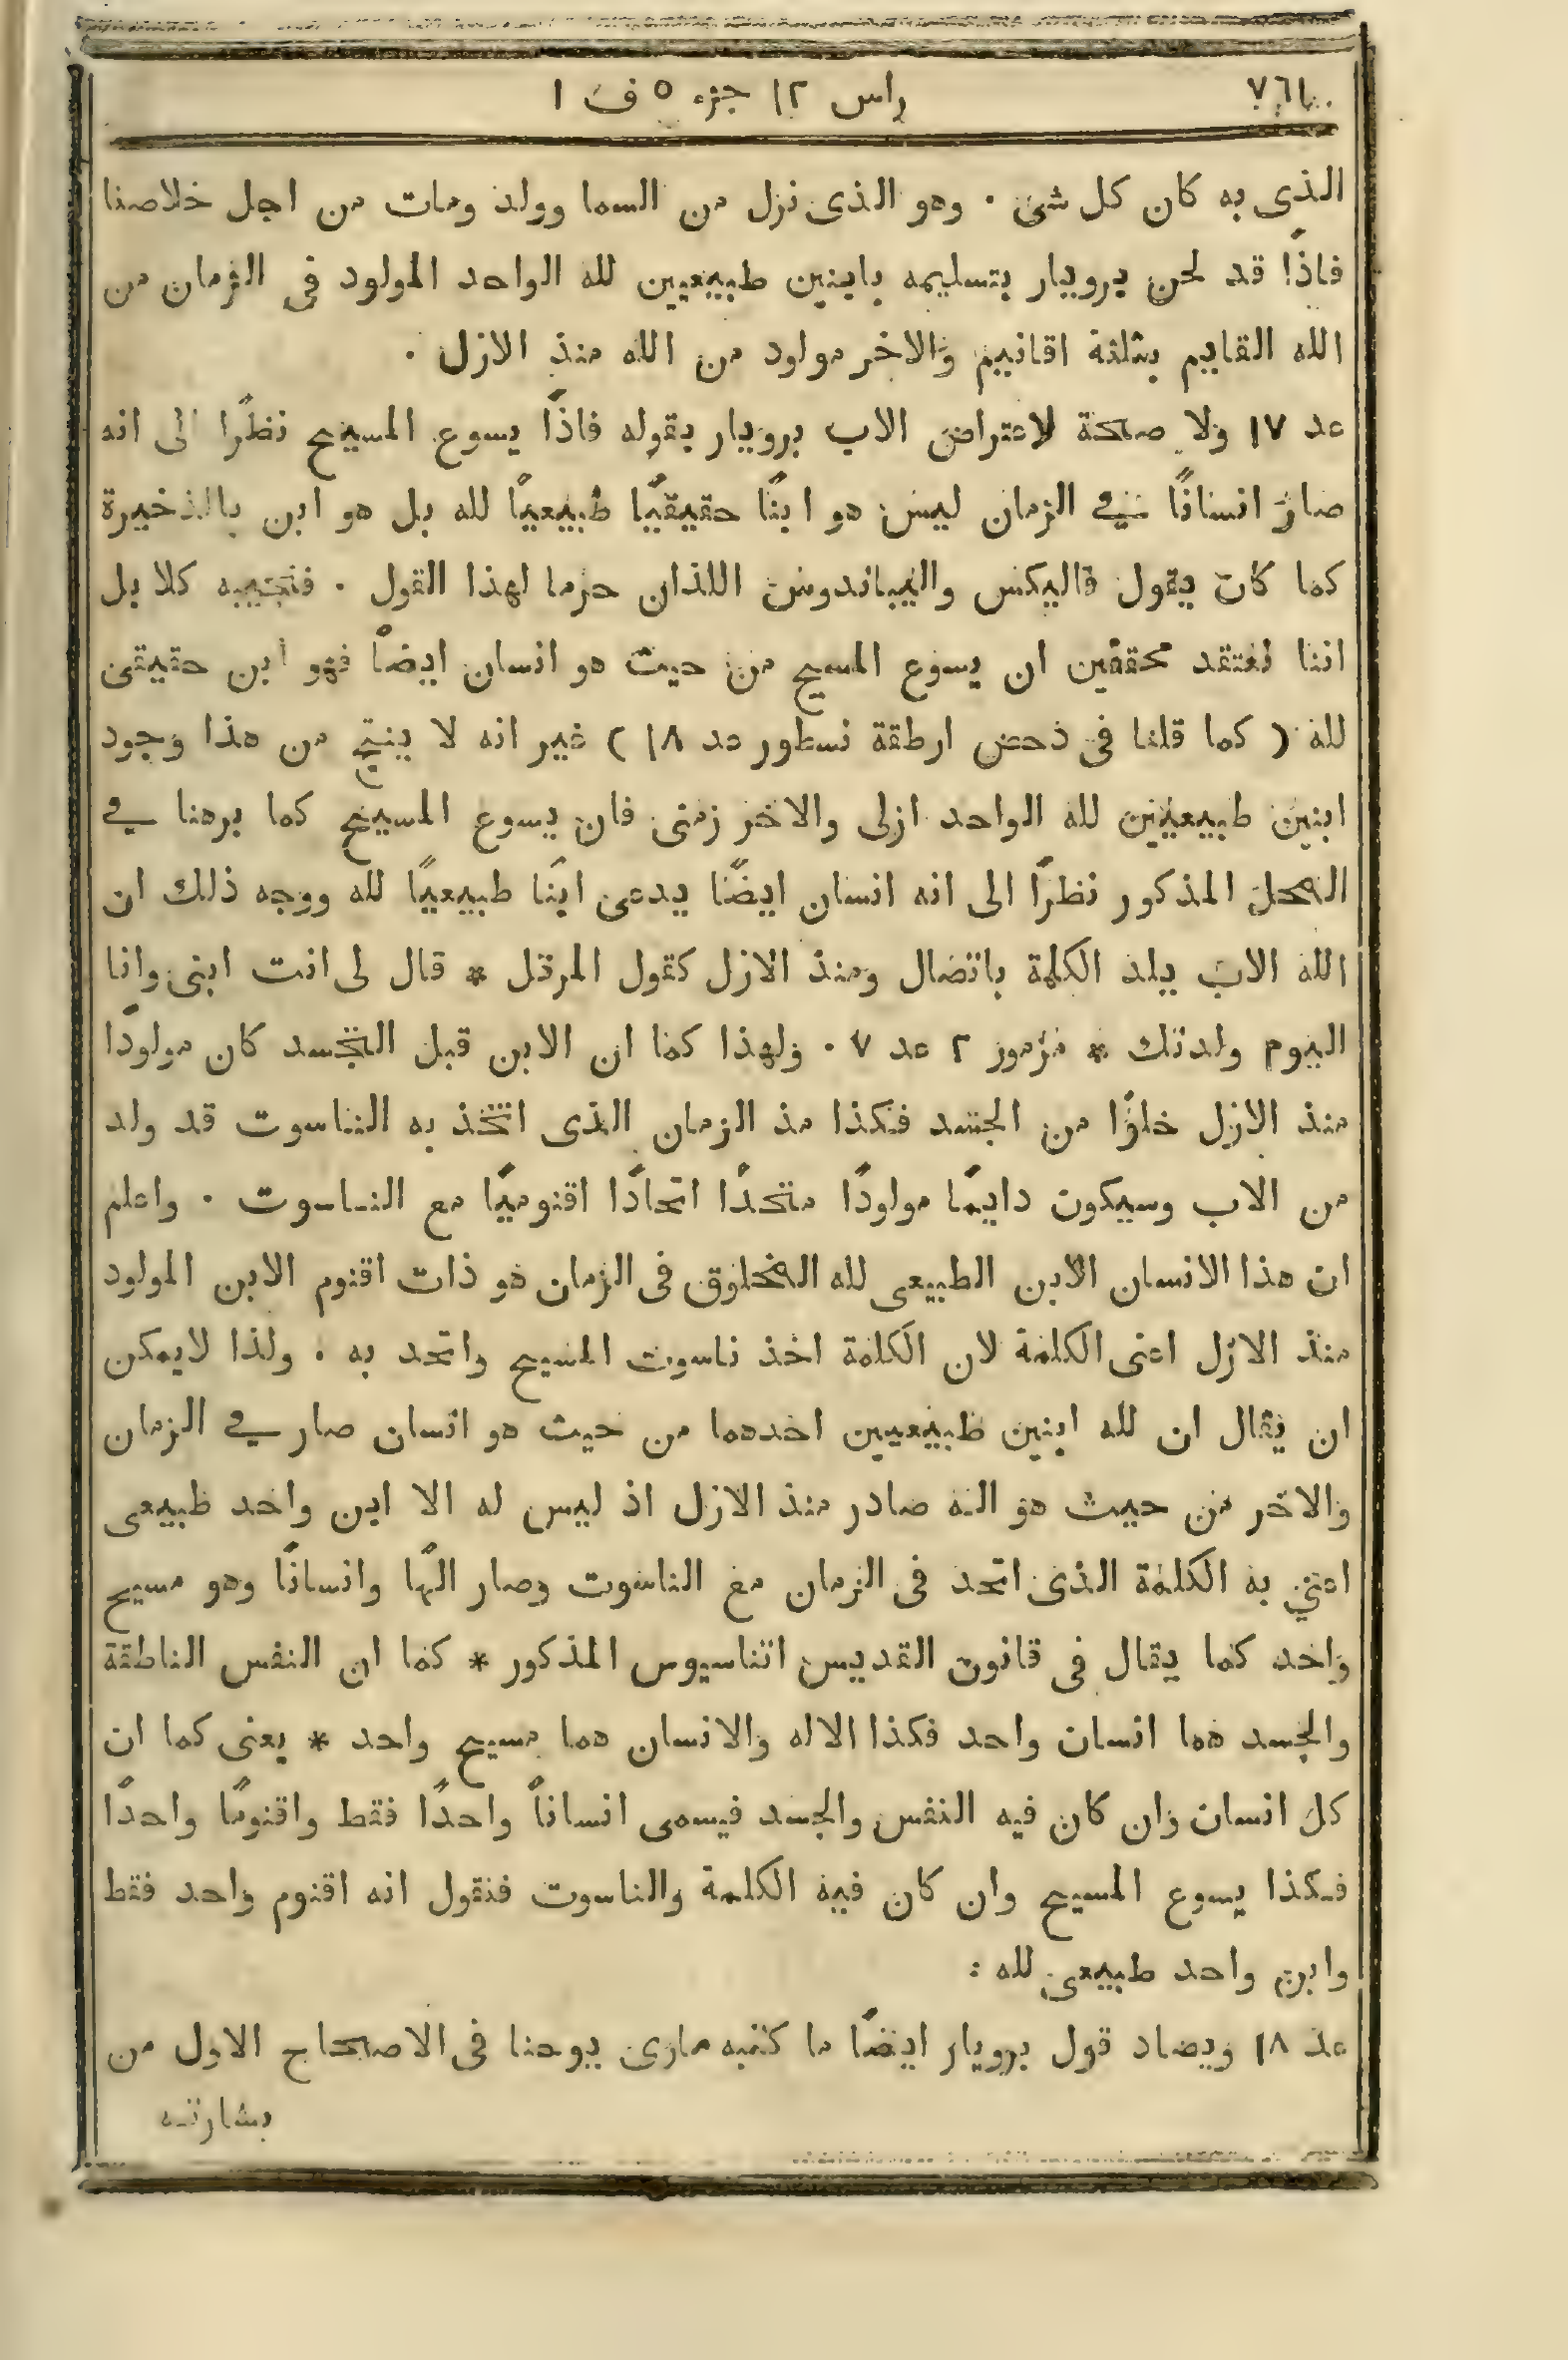 ٧٦٤ راس ١٢ جزء ٥ ف ١
الذى به كان كل شى . وهو الذى نزل من السما وولد ومات من اجل خلاصنا
فاذًا قد لحن برويار بتسليمه بابنين طبيعيين لله الواحد المولود فى الزمان من
الله القايم بثلثة اقانيم والاخر مولود من الله منذ الازل .
عد ١٧ ولا صحة لاعتراض الاب برويار بقوله فاذًا يسوع المسيح نظرًا الى انه
صار انسانًا فى الزمان ليس هو ابنًا حقيقيًا طبيعيًا لله بل هو ابن بالذخيرة
كما كان يقول فاليكس واليباندوس اللذان حرما لهذا القول . فنجيبه كلا بل
اننا نعتقد محققين ان يسوع المسيح من حيث هو انسان ايضًا فهو ابن حقيقى
لله ( كما قلنا فى دحض ارطقة نسطور عد ١٨ ) غير انه لا ينتج من هذا وجود
ابنين طبيعيين لله الواحد ازلى والاخر زمنى فان يسوع المسيح كما برهنا فى
المحل المذكور نظرًا الى انه انسان ايضًا يدعى ابنًا طبيعيًا لله ووجه ذلك ان
الله الاب يلد الكلمة باتصال ومنذ الازل كقول المرتل * قال لى انت ابنى وانا
اليوم ولدتك * مزمور ٢ عد ٧ . ولهذا كما ان الابن قبل التجسد كان مولودًا
منذ الازل خلوًا من الجسد فكذا مذ الزمان الذى اتخذ به الناسوت قد ولد
من الاب وسيكون دايمًا مولودًا متحدًا اتحادًا اقنوميًا مع الناسوت . واعلم
ان هذا الانسان الابن الطبيعى لله المخلوق فى الزمان هو ذات اقنوم الابن المولود
منذ الازل اعنى الكلمة لان الكلمة اخذ ناسوت المسيح واتحد به . ولذا لايمكن
ان يقال ان لله ابنين طبيعيين احدهما من حيث هو انسان صار فى الزمان
والاخر من حيث هو اله صادر منذ الازل اذ ليس له الا ابن واحد طبيعى
اعني به الكلمة الذى اتحد فى الزمان مع الناسوت وصار الهًا وانسانًا وهو مسيح
واحد كما يقال فى قانون القديس اتناسيوس المذكور * كما ان النفس الناطقة
والجسد هما انسان واحد فكذا الاله والانسان هما مسيح واحد * يعنى كما ان
كل انسان وان كان فيه النفس والجسد فيسمى انسانًا واحدًا فقط واقنومًا واحدًا
فكذا يسوع المسيح وان كان فيه الكلمة والناسوت فنقول انه اقنوم واحد فقط
وابن واحد طبيعى لله :
عد ١٨ ويضاد قول برويار ايضًا ما كتبه مارى يوحنا فى الاصحاح الاول من
بشارته